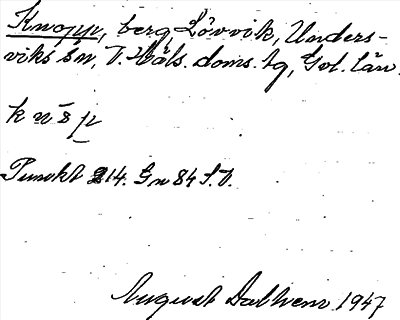 Knopp, berg, Lövvik, Unders-
viks sn, V. Häls. doms. tg, Gvl. län.
knŏp
Punkt 214. Gn 84 S.V.
August Dalhem 1947